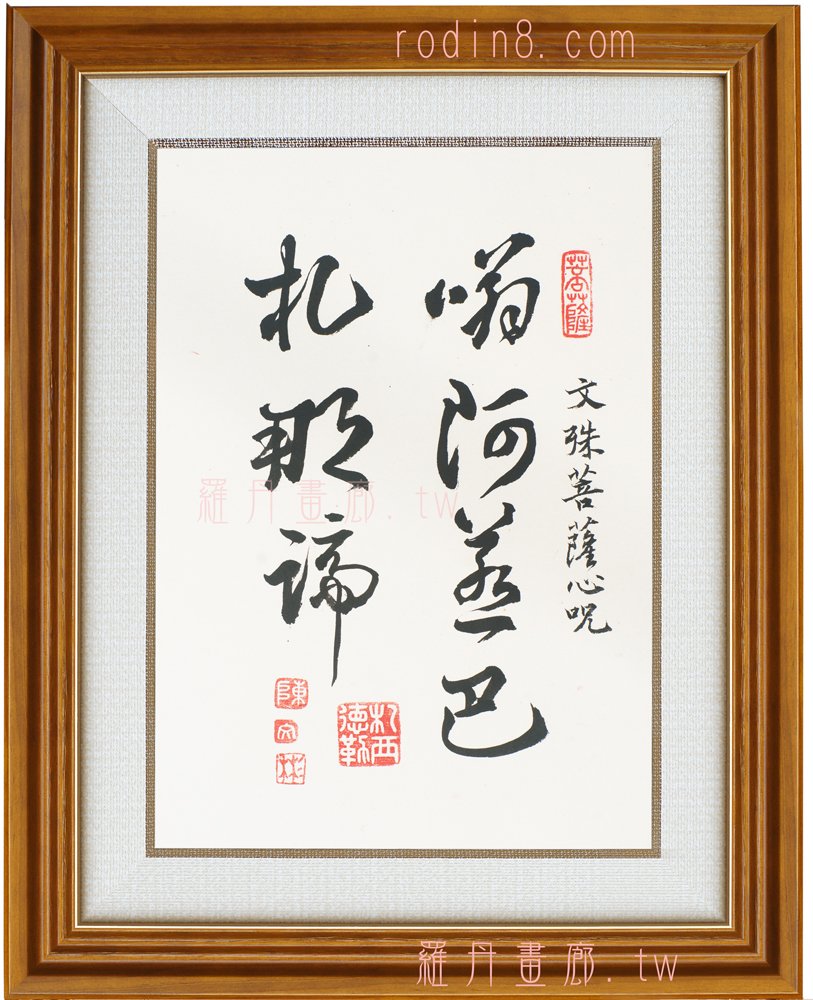 rodin8. com
菩薩
文殊菩薩心呪
嗡阿惹巴
札那諦
札西
德勒
陳
文
彬
羅丹畫廊. tw
羅丹畫廊. tw